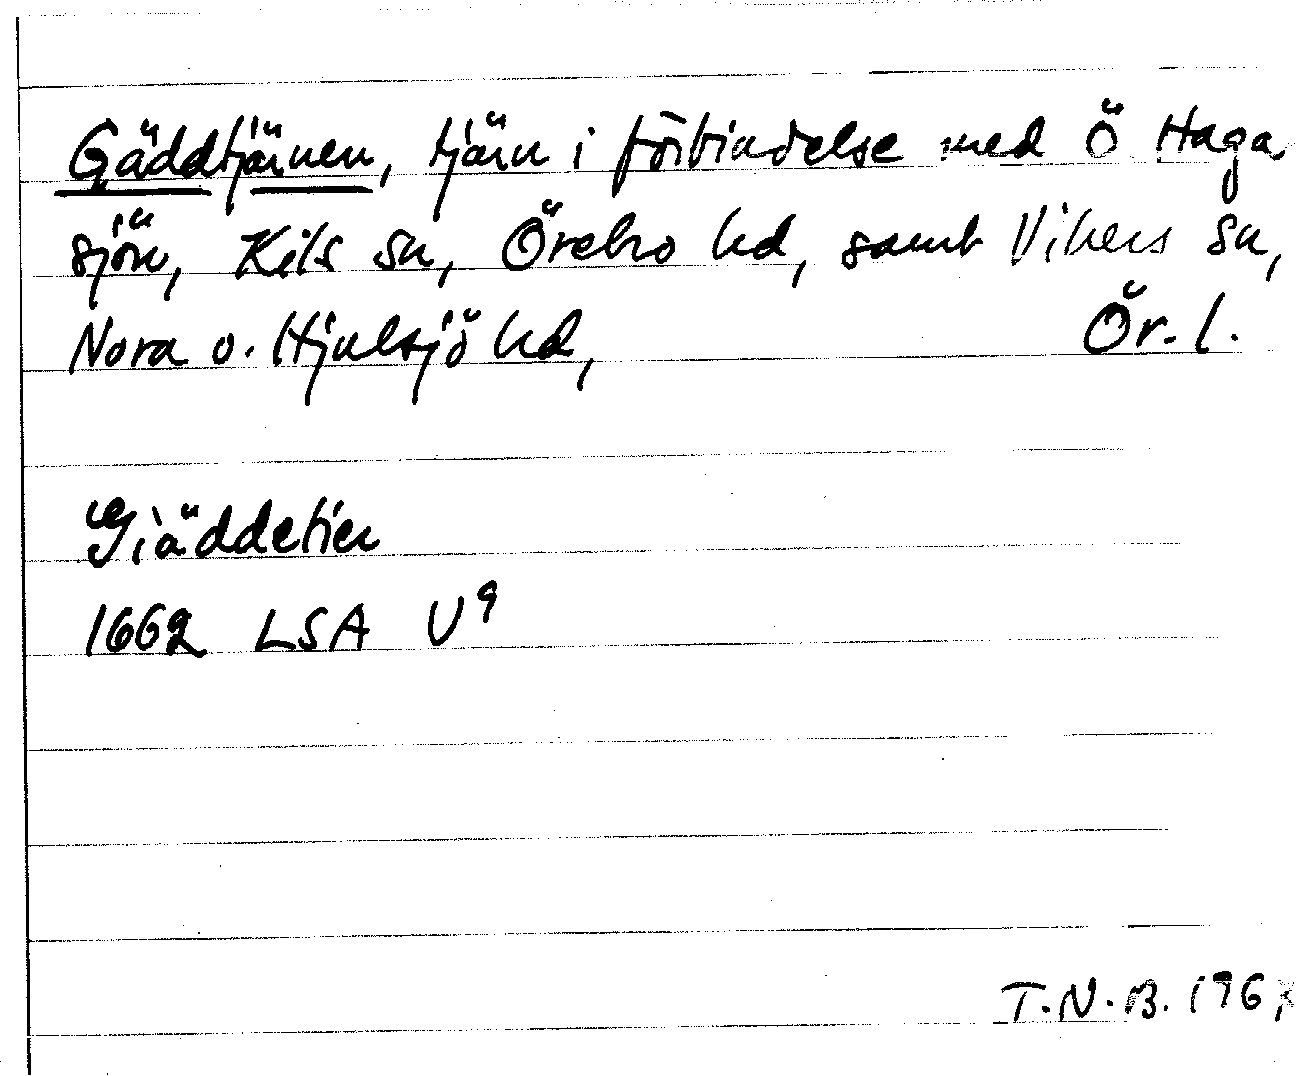 Gäddtjärnen, tjärn i förbindelse med Ö Haga
sjön, Kils sn, Örebro hd, samt Vikers sn,
Nora o. Hjulsjö hd, Ör. l.
Giäddetien
1662 LSA U⁹
T.N.B.